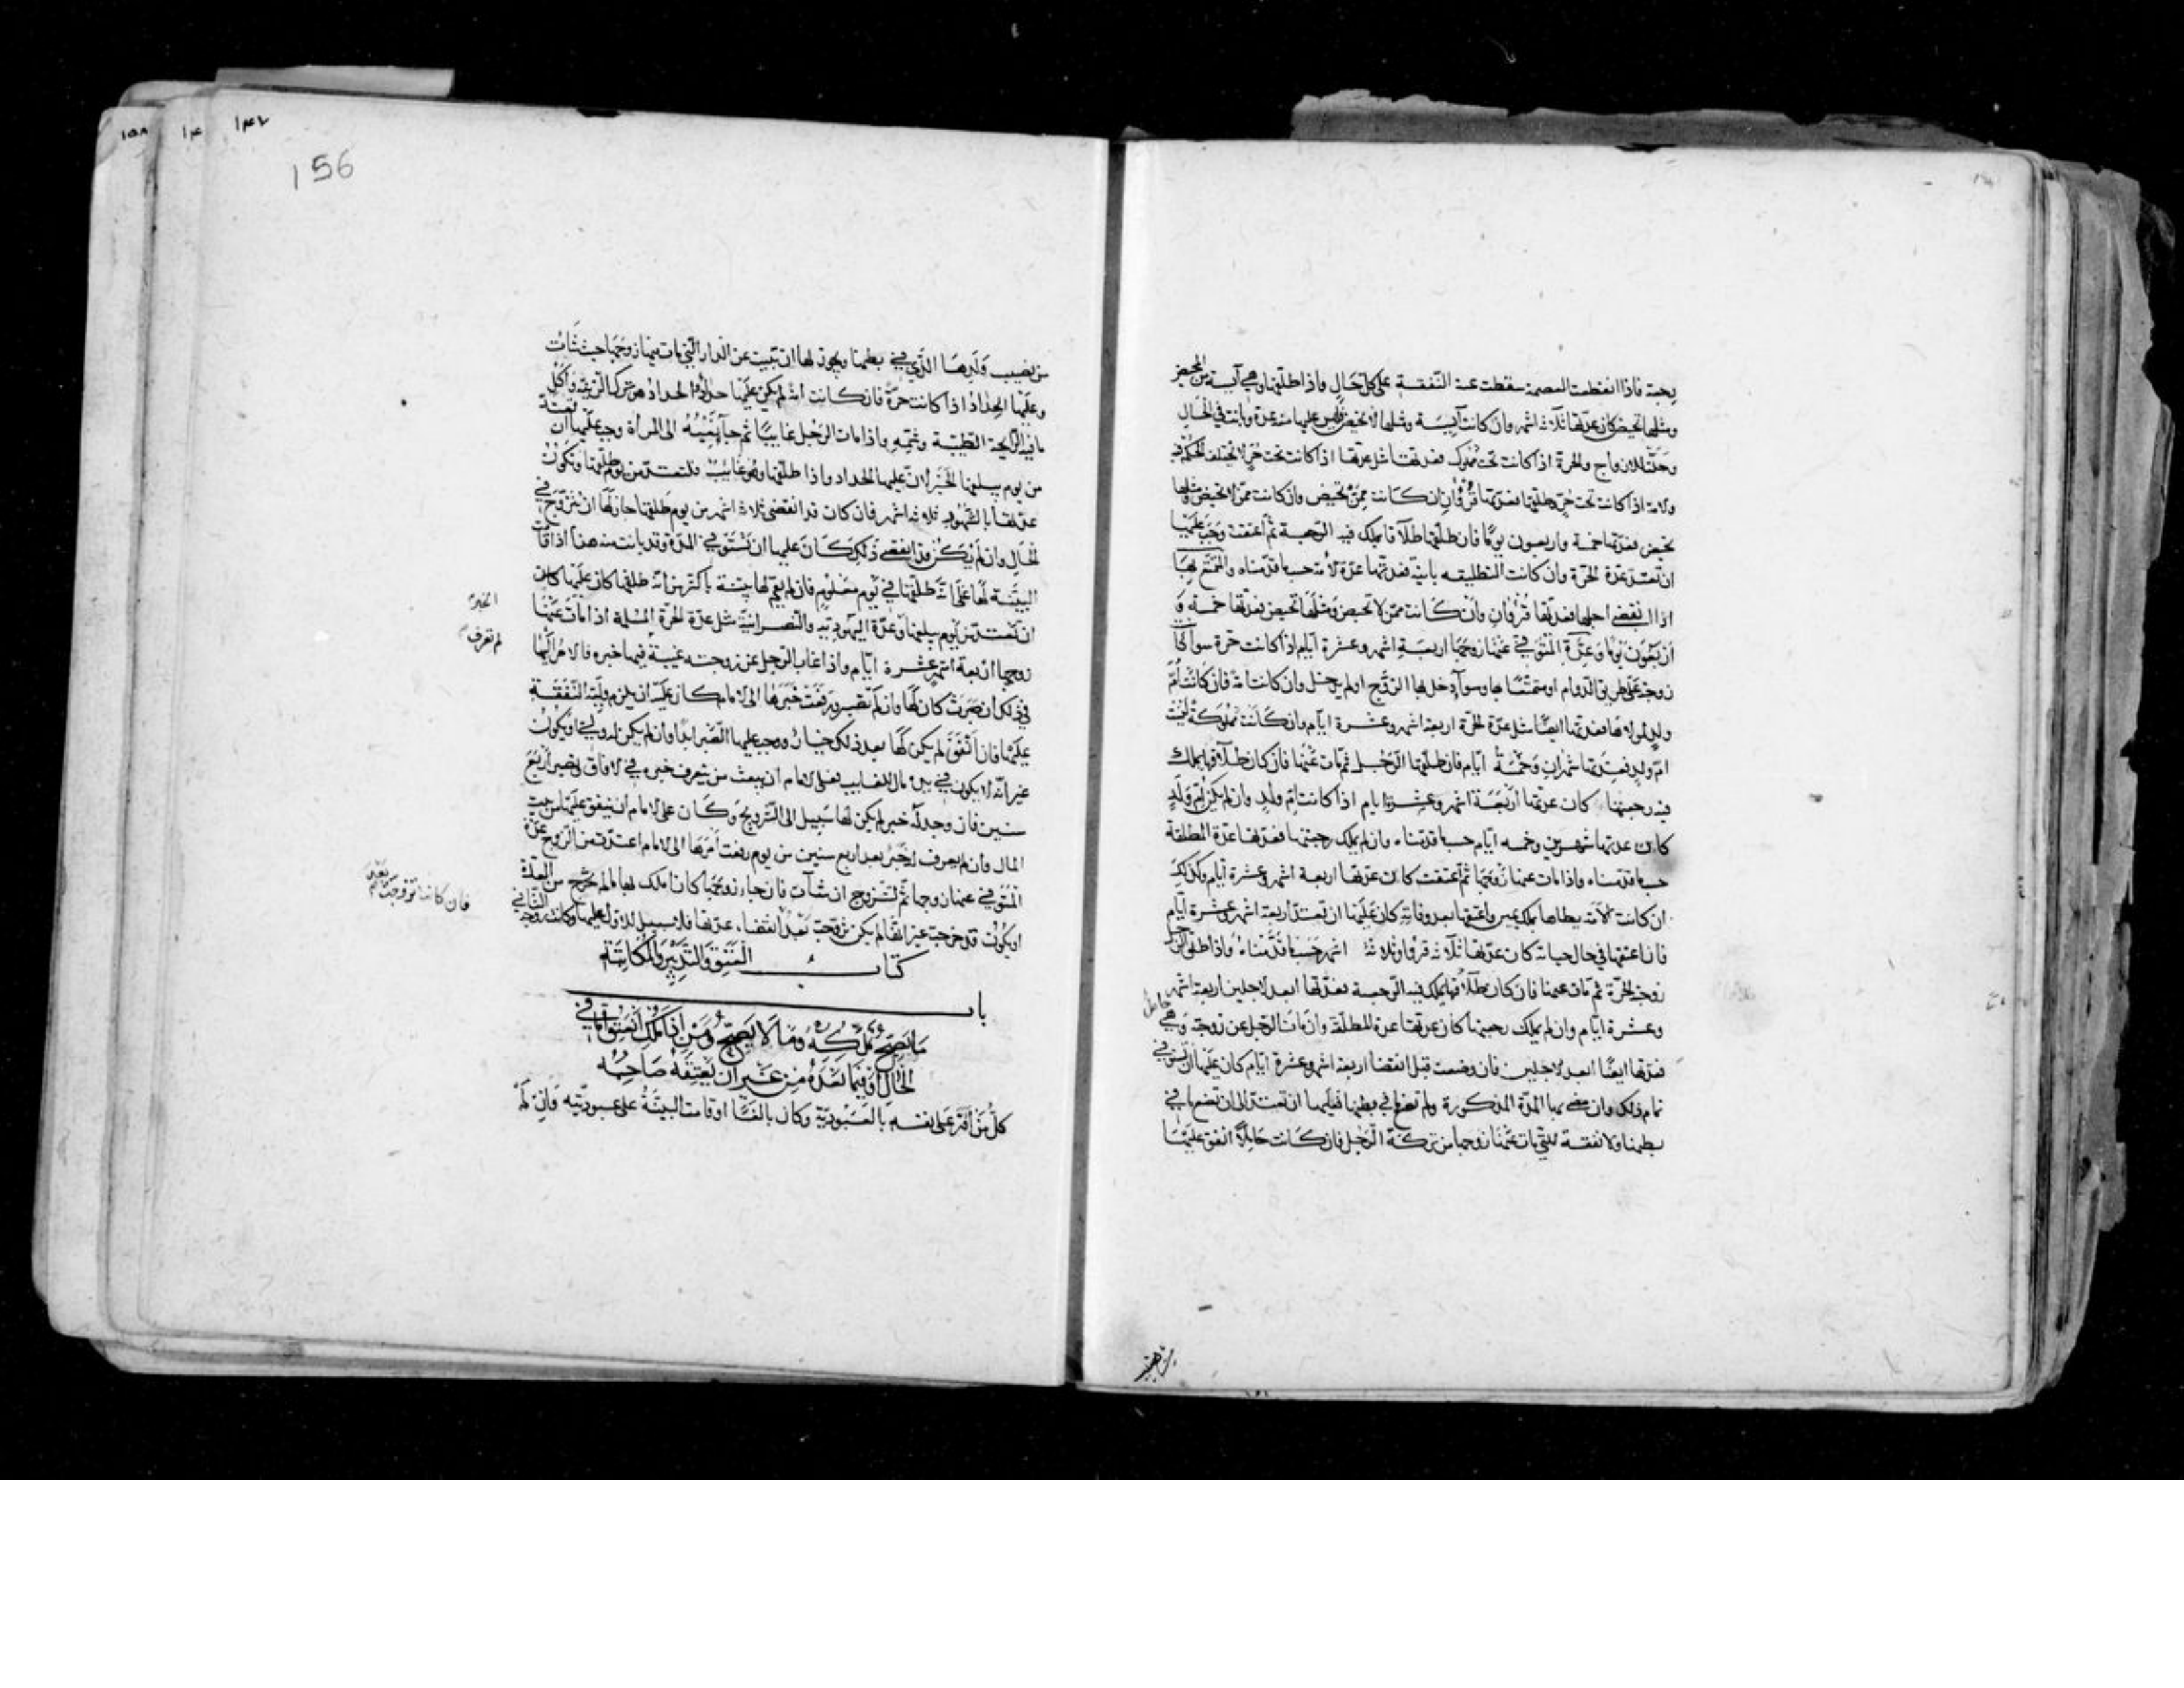 رجعية فاذا انقطعت العصمة سقطت عنه النفقة على كل حال واذا طلقها وهي آيسة من المحيض
ومثلها تحيض كان عدتها ثلاثة اشهر وان كانت آيسة ومثلها لا تحيض فليس عليها منه عدة وبانت في الحال
وحلت للازواج والحرة اذا كانت تحت مملوك فعدتها مثل عدتها اذا كانت تحت حر لا يختلف الحكم فيه
والامة اذا كانت تحت حر وطلقها فعدتها قرؤان ان كانت ممن تحيض وان كانت ممن لا تحيض ومثلها
تحيض فعدتها خمسة واربعون يوما فان طلقها طلاقا يملك فيه الرجعة ثم اعتقت وجب عليها
ان تعتد عدة الحرة وان كانت التطليقه باينة فعدتها عدة الامة حسبما قدمناه والمتمتع بها
اذا انقضى اجلها فعدتها قرؤان وان كانت ممن لا تحيض ومثلها تحيض فعدتها خمسة و
اربعون يوما وعدة المتوفى عنها زوجها اربعة اشهر وعشرة ايام اذا كانت حرة سواء كا
زوجة على طريق الدوام او متمتعا بها وسواء دخل بها الزوج او لم يدخل وان كانت امة فان كانت ام
ولد لمولاها فعدتها ايضا مثل عدة الحرة اربعة اشهر وعشرة ايام وان كانت مملوكة ليست
ام ولد فعدتها شهران وخمسة ايام فان طلقها الرجل ثم مات عنها فان كان طلاقا يملك
فيه رجعتها كان عدتها اربعة اشهر وعشرة ايام اذا كانت ام ولد وان لم يكن ام ولد
كان عدتها شهرين وخمسه ايام حسبما قدمناه وان لم يملك رجعتها فعدتها عدة المطلقة
حسبما قدمناه واذا مات عنها زوجها ثم اعتقت كان عدتها اربعة اشهر وعشرة ايام وكذلك
ان كانت الامة يطاها بملك يمين واعتقها بعد وفاته كان عليها ان تعتد اربعة اشهر وعشرة ايام
فان اعتقها في حال حياته كان عدتها ثلاثة قروء او ثلاثة اشهر حسبما قدمناه واذا طلق الرجل
زوجته الحرة ثم مات عنها فان كان طلاقا يملك فيه الرجعة فعدتها ابعد الاجلين اربعة اشهر
وعشرة ايام وان لم يملك رجعتها كان عدتها عدة المطلقة وان مات الرجل عن زوجته وهي حامل
فعدتها ايضا ابعد الاجلين فان وضعت قبل انقضاء اربعة اشهر وعشرة ايام كان عليها ان تستوفي
تمام ذلك وان مضى بها المدة المذكورة ولم تضع ما في بطنها فعليها ان تعتد الى ان تضع ما في
بطنها ولا نفقة للتي مات عنها زوجها من تركة الرجل فان كانت حاملا انفق عليها
156
من نصيب ولدها الذي في بطنها ويجوز لها ان تبيت عن الدار التي مات فيها زوجها حيث شاءت
وعليها الحداد اذا كانت حرة فان كانت امة لم يكن عليها حداد والحداد هو ترك الزينة واكل
ما فيه الرائحة الطيبة وشمه واذا مات الرجل غايبا ثم جاء نعيه الى المرأة وجب عليها ان تعتد
من يوم يبلغها الخبر لان عليها الحداد واذا طلقها وهو غايب فلتعتد من يوم طلقها وتكون
عدتها بالشهود ثلاثة اشهر فان كان قد انقضى ثلاثة اشهر من يوم طلقها جاز لها ان تتزوج في
الحال وان لم يكن قد انقضى ذلك كان عليها ان تستوفي المدة وقد بانت منه هذا اذا قامت
البينة لها على انه طلقها في يوم معلوم فان لم يقم لها بينة باكثر من انه طلقها كان عليها
ان تعتد من يوم يبلغها وعدة اليهودية والنصرانية مثل عدة الحرة المسلمة اذا مات عنها
زوجها اربعة اشهر وعشرة ايام واذا غاب الرجل عن زوجته غيبة فيها خبره فالامر اليها
في ذلك ان صبرت كان لها وان لم تصبر ورفعت خبرها الى الامام كان عليه ان يلزم وليه النفقة
عليها فان انفق لم يكن لها بعد ذلك خيار ووجب عليها الصبر ابدا وان لم يكن له ولي او يكون
غير انه لا يكون في يده مال للغايب فعلى الامام ان يبعث من يتعرف خبره في الافاق ويصبر اربع
سنين فان وجد له خبر لم يكن لها سبيل الى التزويج وكان على الامام ان ينفق عليها من بيت
المال وان لم يعرف له خبر بعد اربع سنين من يوم رفعت امرها الى الامام اعتدت من الزوج عدة
المتوفى عنها زوجها ثم لتتزوج ان شاءت فان جاء زوجها كان املك بها ما لم تخرج من العدة
او يكون قد خرجت غير انها لم يكن تزوجت بعد انقضاء عدتها فلا سبيل للاول عليها وكانت زوجة الثاني
الخبر
لم تعرف
فان كانت تزوجت بعد
كتاب العتق والتدبير والمكاتبة
باب
ما يصح ملكه وما لا يصح ومن اذا ملك انعتق اما في
الحال او فيما بعده من غير ان يعتقه صاحبه
كل من اقر على نفسه بالعبودية وكان بالغا او قامت البينة على عبوديته وان لم